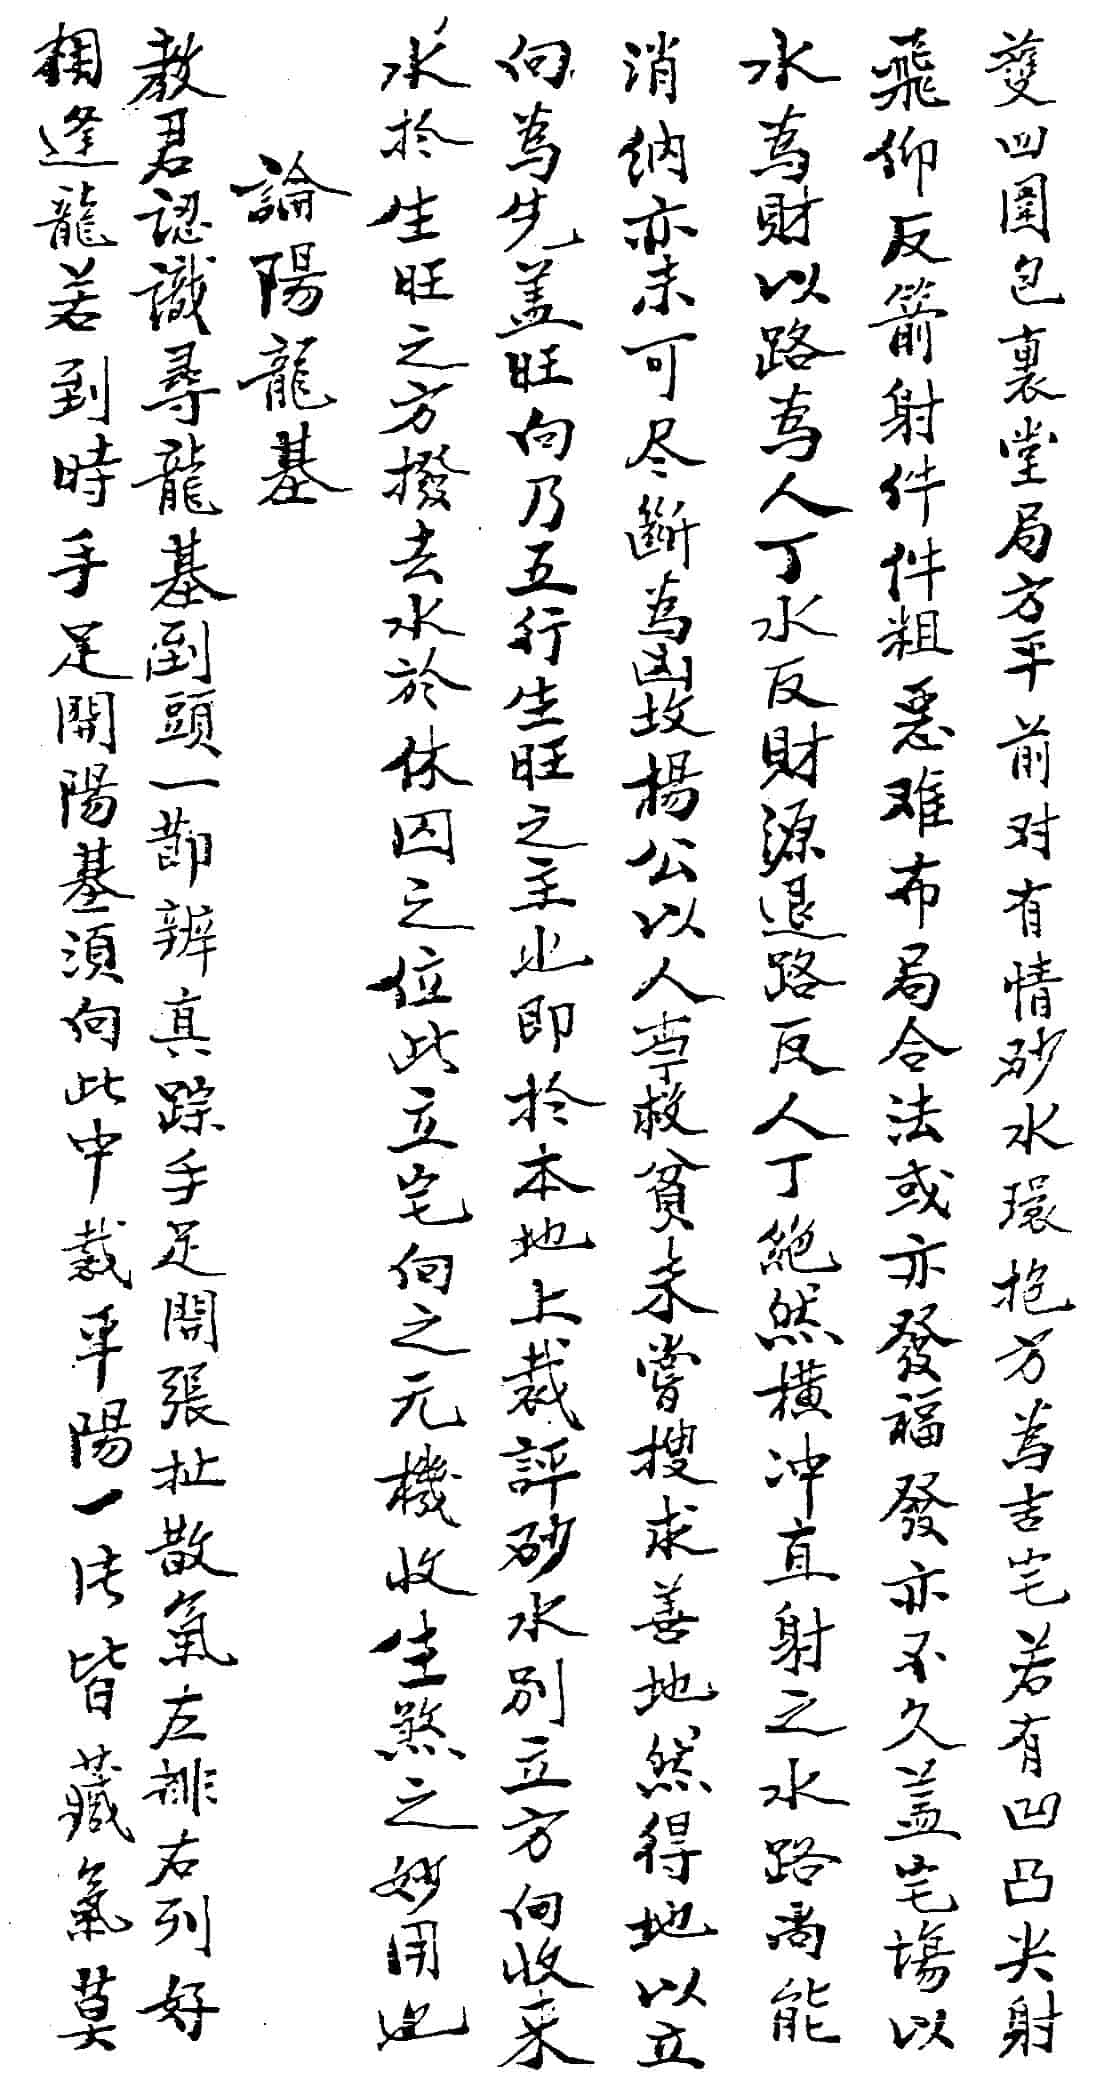 護四圍包裹堂局方平前对有情砂水環抱方為吉宅若有凹凸尖射
飛仰反箭射件件粗惡难布局合法或亦發福發亦不久盖宅塲以
水為財以路為人丁水反財源退路反人丁絕然橫冲直射之水路尚能
消纳亦未可尽斷為凶故楊公以人事救貧未嘗搜求善地然得地以立
向為先盖旺向乃五行生旺之主也即於本地上裁評砂水別立方向收来
水於生旺之方撥去水於休囚之位此立宅向之元機收生煞之妙用也
論陽龍基
教君認識尋龍基到頭一節辨真踪手足開張扯散氣左排右列好
欄逢龍若到時手足開陽基須向此中裁平陽一法皆藏氣莫